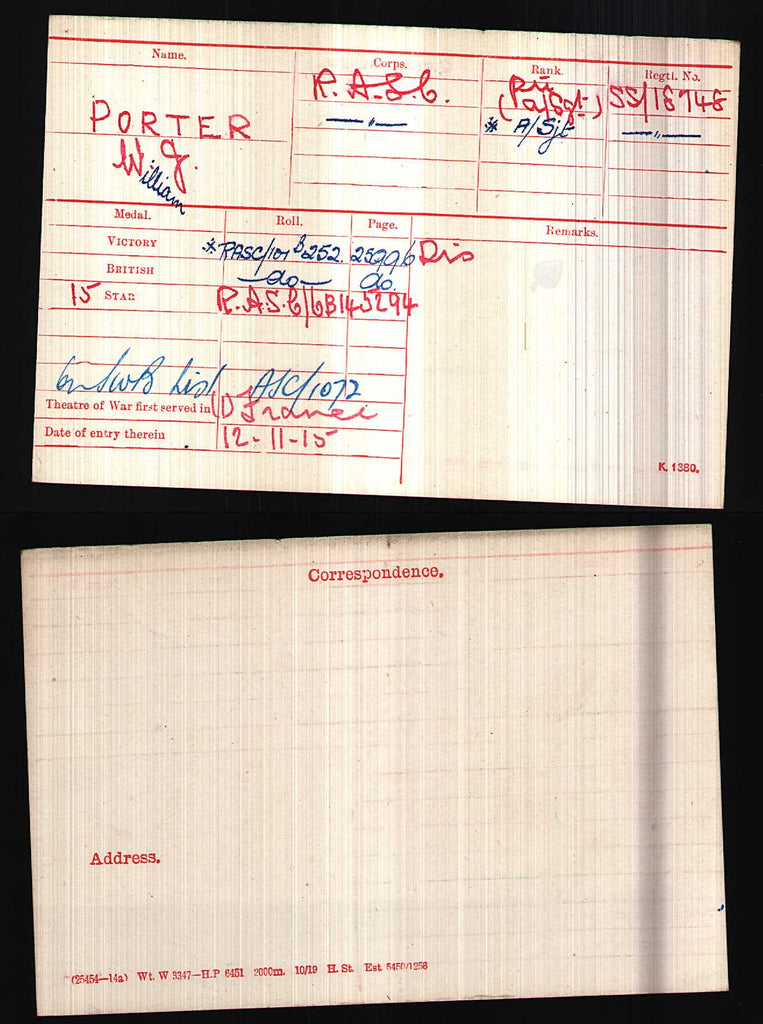 Name. Corps. Rank. Regtl. No.
PORTER R.A.S.C. Pte SS/18748
W. J. (a/Sgt.)
William —„— * A/Sjt —„—
Medal. Roll. Page. Remarks.
VICTORY * RASC/101 B252. 25996 Dis
BRITISH —do— do.
15 STAR R.A.S.C/6B14 5294
SWB List ASC/1072
Theatre of War first served in (1) France
Date of entry therein 12-11-15
K. 1380.
Correspondence.
Address.
(25454—14a) Wt. W 3347—H.P 6451 2000m. 10/19 H. St. Est. 5450/1256